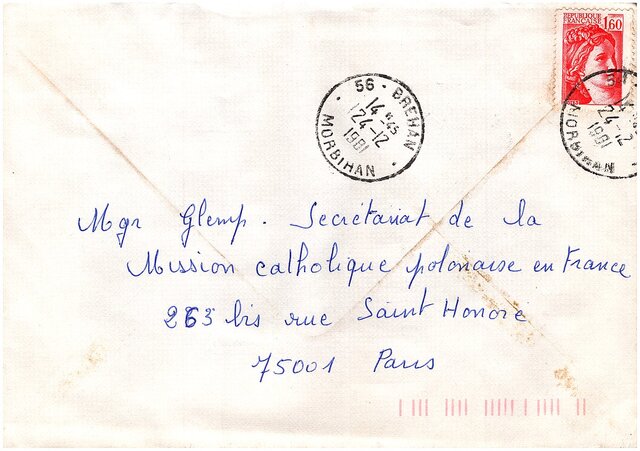 REPUBLIQUE
FRANCAISE
1,60
56 - BREHAN
14 H 45
24-12
1981
MORBIHAN
24-12
1981
MORBIHAN
Mgr Glemp. Secrétariat de la
Mission catholique polonaise en France
263 bis rue Saint Honoré
75001 Paris